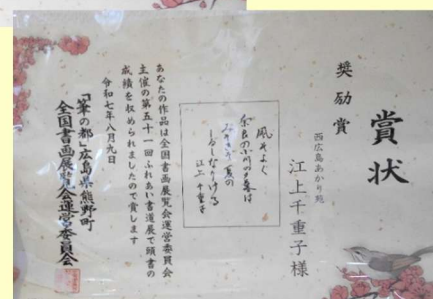 賞状
奨励賞
西広島あかり苑
江上千重子様
風そよぐ
奈良の小川の夕暮は
みそぎぞ夏の
しるしなりける
江上千重子
あなたの作品は全国書画展覧会運営委員会
主催の第五十一回ふれあい書道展で頭書の
成績を収められましたので賞します
令和七年八月九日
「筆の都」広島県熊野町
全国書画展覧会運営委員会